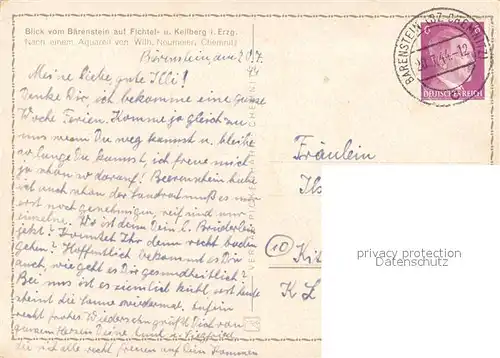 Blick vom Bärenstein auf Fichtel- u. Keilberg i. Erzg.
Nach einem Aquarell von Wilh. Neumann, Chemnitz
Bärenstein, den 20.7.
44
Meine liebe gute Illi!
Danke Dir, ich bekomme eine ganze
Woche Ferien. Komme ja gleich zu
uns wenn Du weg kannst u. bleibe
so lange Du kannst, ich freue mich
ja schon so darauf! Beerenschein habe
auch schon der Landrat muß es nur
erst noch genehmigen, reif sind nur
einzelne. Wo ist denn Dein l. Brüderlein
jetzt? Konntet Ihr denn recht baden
gehen? Hoffentlich bekommt es Dir
auch, wie geht es Dir gesundheitlich?
Bei uns ist es ziemlich kühl erst heute
scheint die Sonne wiedermal. Auf ein
recht frohes Wiedersehn grüßt Dich von
ganzem Herzen Deine u. Siegfried
die sich alle recht freuen auf Dein Kommen
BÄRENSTEIN (BZ. CHEMNITZ)
DEUTSCHES REICH
Fräulein
10
Kit
K L
privacy protection
AKpool.de